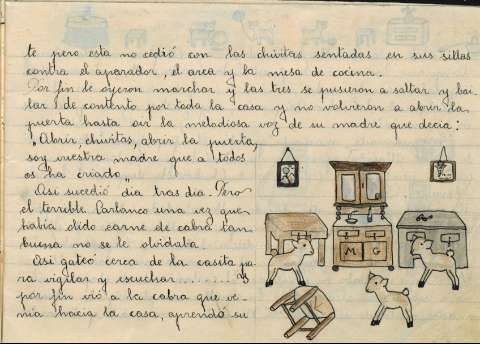 te pero esta no cedió con las chivitas sentadas en sus sillas
contra el aparador, el arca y la mesa de cocina.
Por fin le oyeron marchar y las tres se pusieron a saltar y bai-
lar de contento por toda la casa y no volvieron a abrir la
puerta hasta oir la melodiosa voz de su madre que decia:
"Abrir, chivitas, abrir la puerta,
soy vuestra madre que a todos
os ha criado"
Asi sucedió dia tras dia. Pero
el terrible Carlanco una vez que
habia olido carne de cabra tan
buena no se le olvidaba.
Asi gateó cerca de la casita pa-
ra vigilar y escuchar........ y
por fin vió a la cabra que ve-
nia hacia la casa, aprendó su
M G